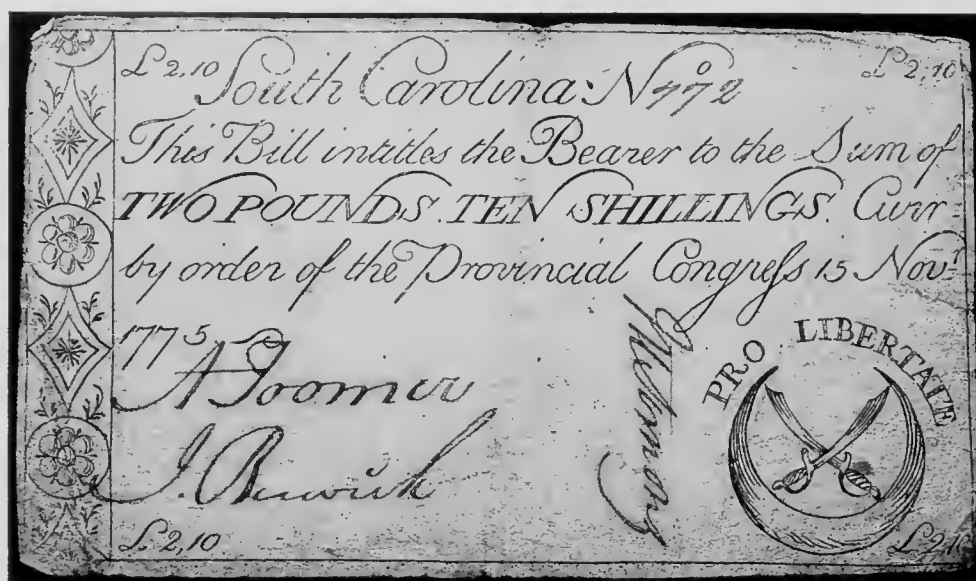 £2,10 South Carolina: No 772 £2,10
This Bill intitles the Bearer to the Sum of
TWO POUNDS. TEN SHILLINGS. Curr=
by order of the Provincial Congreſs 15 Novr
1775
A Toomer
J. Berwick
PRO LIBERTATE
£2,10 £2,10